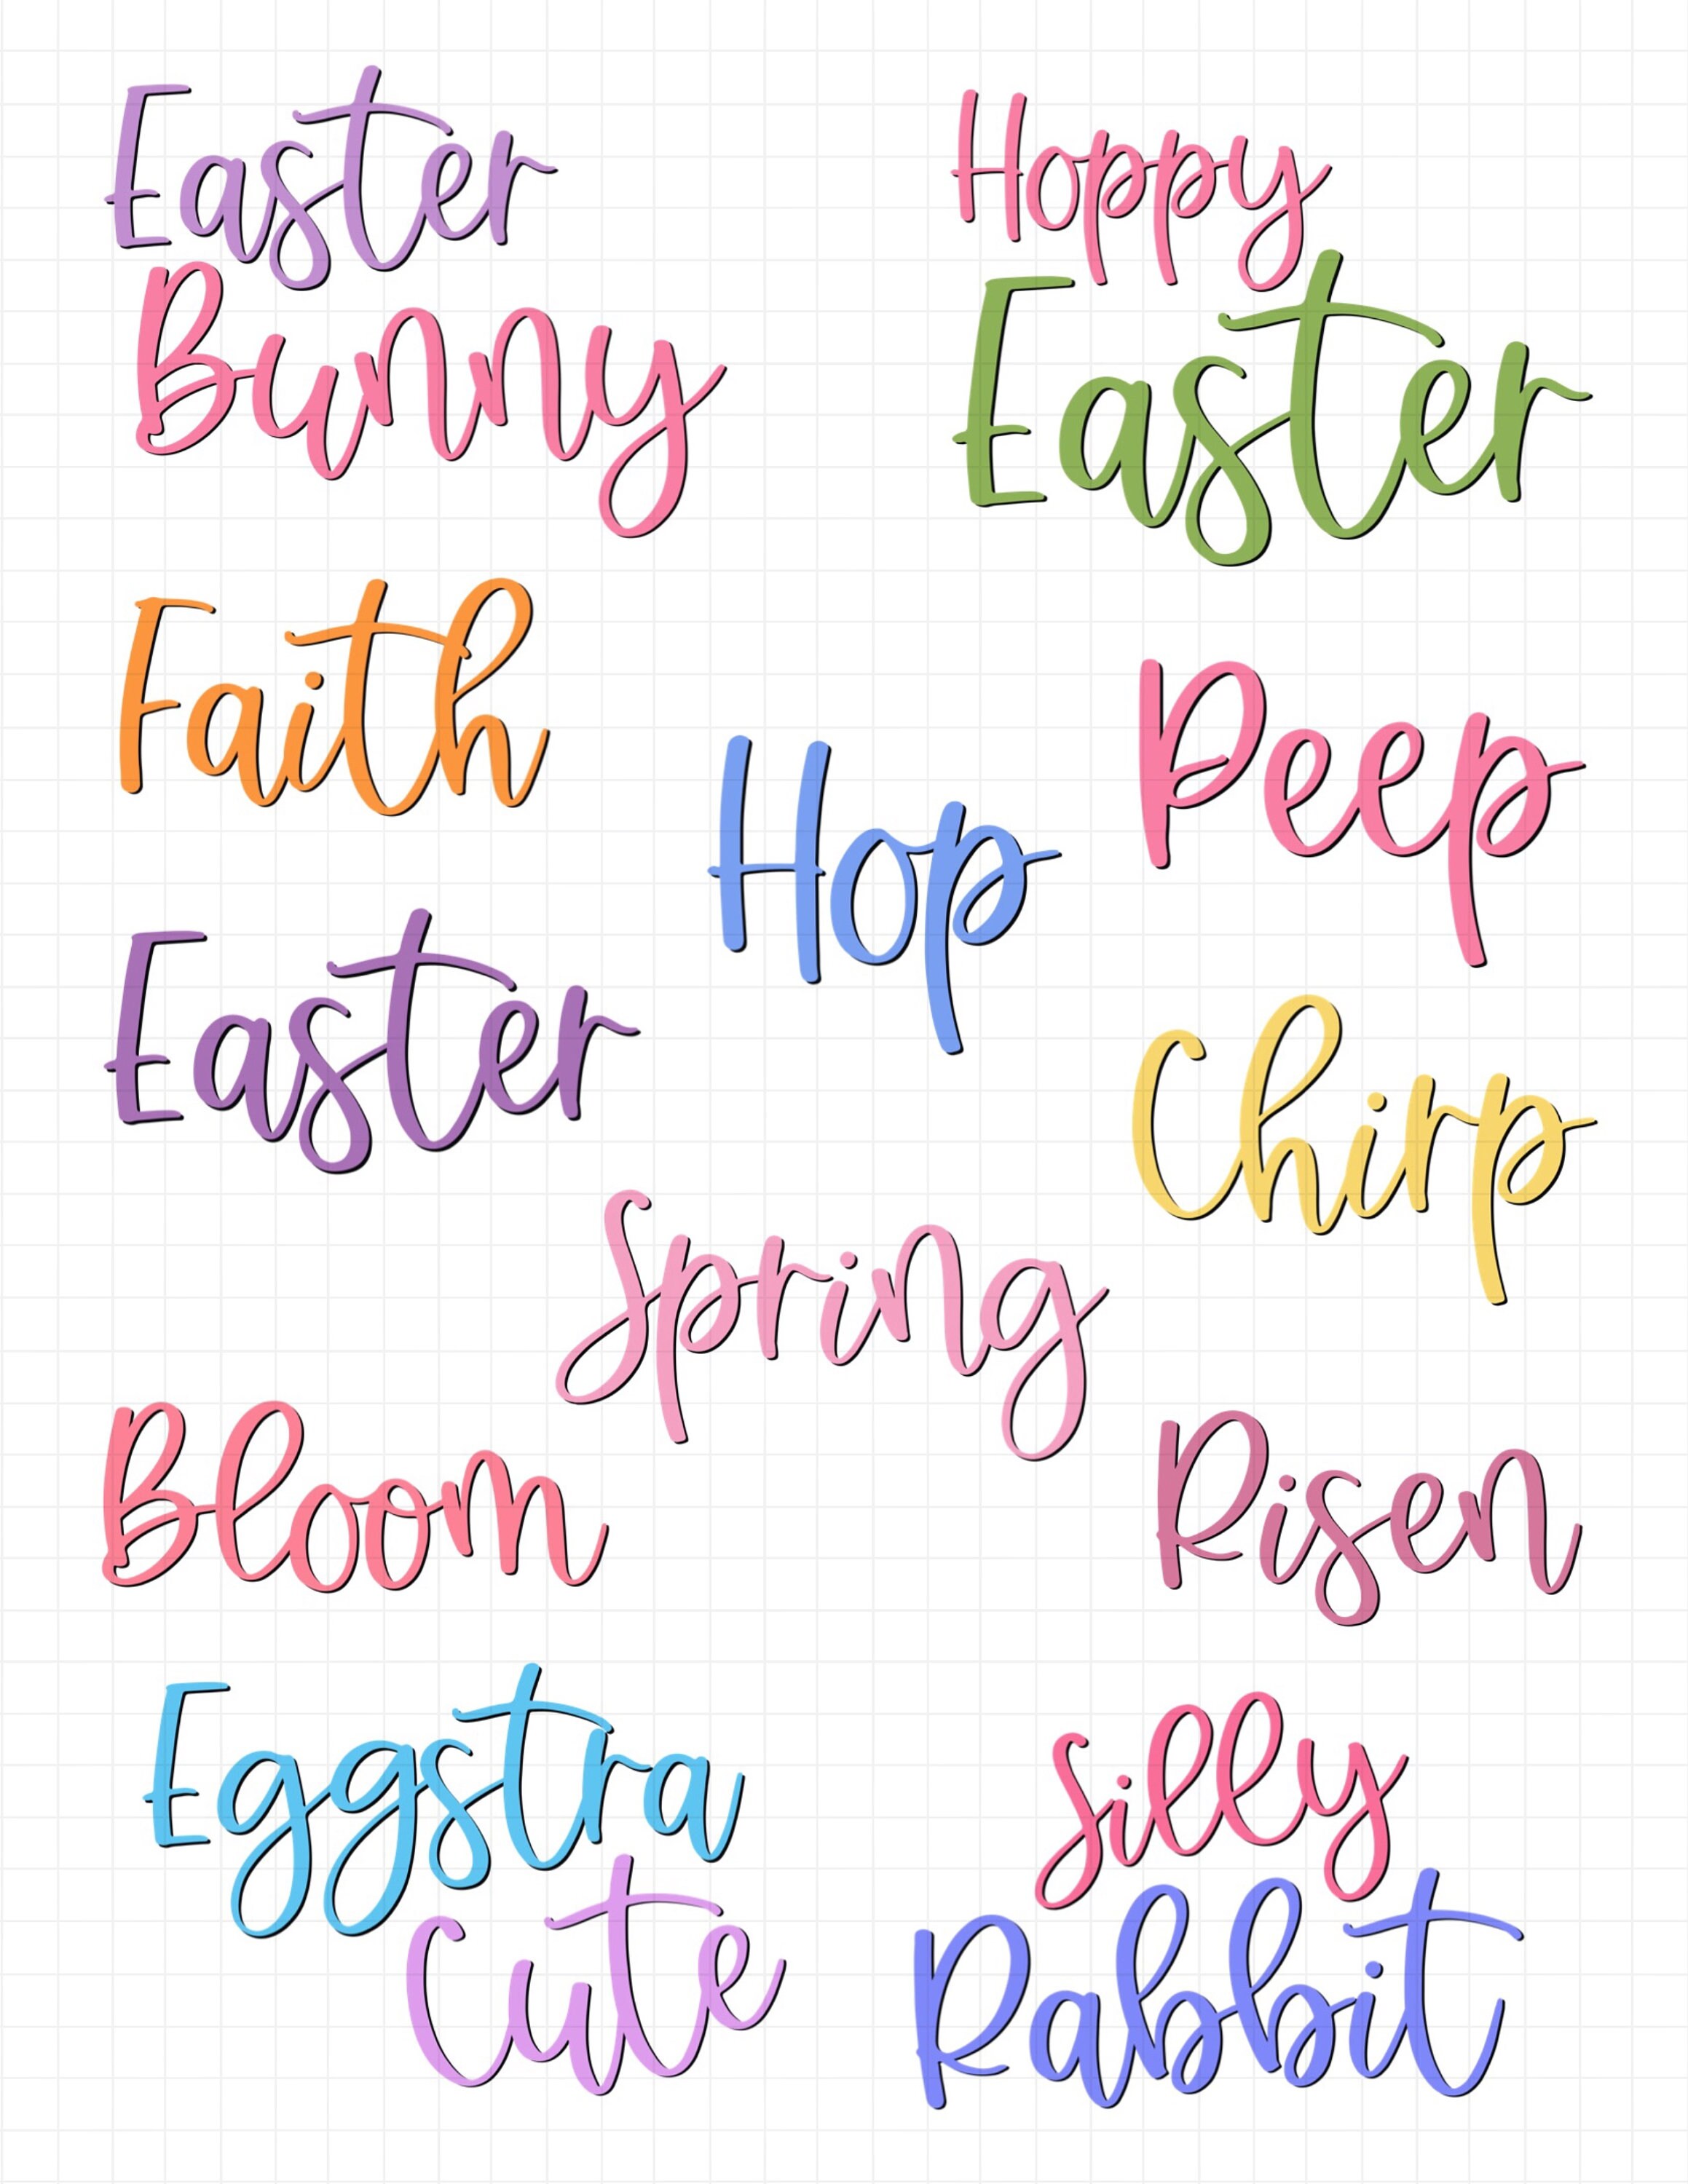 Easter
Bunny
Hoppy
Easter
Faith
Peep
Hop
Easter
Chirp
Spring
Bloom
Risen
Eggstra
Cute
Silly
Rabbit